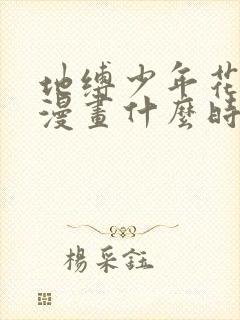 地缚少年花
漫畫什麼時
楊采鈺